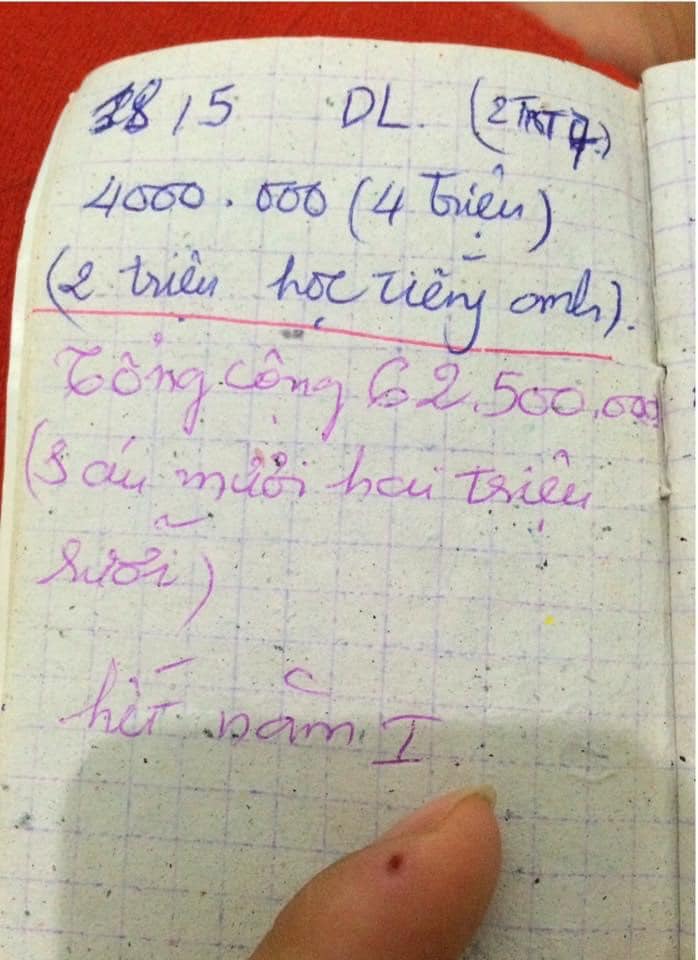 18/5 DL. (2
4000.000 (4 Triệu)
(2 triệu học Tiếng anh).
Tổng cộng 62.500.000
(Sáu mười hai triệu
rưỡi)
hết năm I